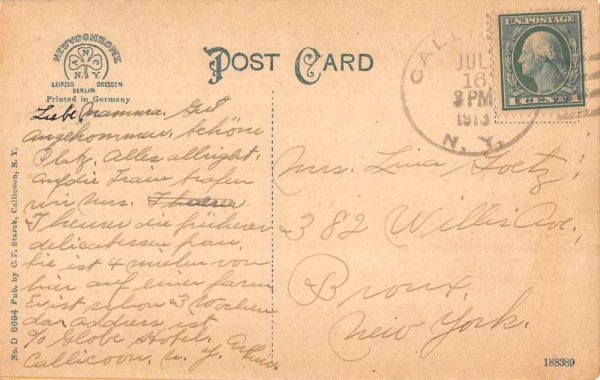 NEWVOCHROME
A N C
N.Y.
LEIPZIG DRESDEN
BERLIN
Printed in Germany
POST CARD
U.S. POSTAGE
1 CENT 1
JUL
16
3 PM
1913
N. Y.
Liebe Mamma. Gut
angekommen. Schöne
Platz. Alles allright.
auf die Train trafen
wir Mrs.
die früherer
delicatessen frau.
Sie ist 4 mielen von
hier auf einer farm
Er ist schon 3 Wochen
da. Address ist
c/o Globe Hotel.
Callicoon. N. Y.
Mrs. Lina Goetz,
382 Willis Ave,
Bronx,
New York.
No. D 6694 Pub. by C. F. Starck, Callicoon, N. Y.
188389